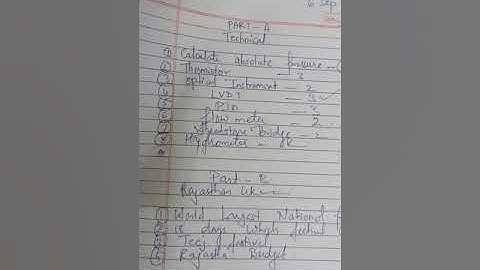 6 Sep
PART - A
Technical
① Calculate absolute pressure - (
② Thermistor — 3
③ Optical Instrument — 2
④ LVDT — 3 ✓
⑤ — 3
⑥ flow meter — 2
⑦ Wheatstone Bridge — 2
⑧ Hygrometer —
Part - B
Rajasthan GK —
① World Largest National
② 15 days which festival
③ Teej festival
④ Rajasthan Budget